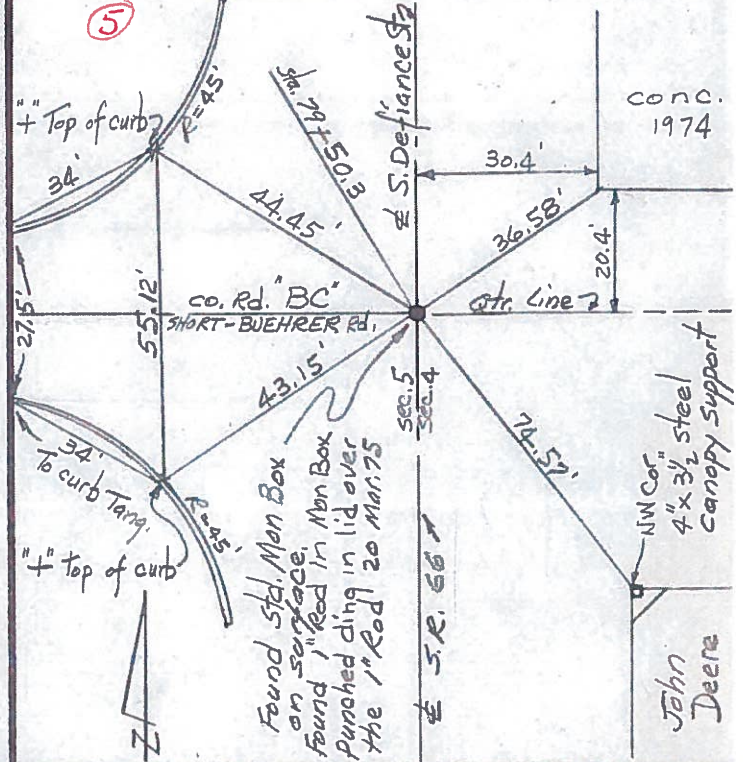 5
"+" Top of curb
R=45'
34'
Sta. 76+50.3
℄ S. Defiance St.
conc.
1974
30.4'
44.45'
36.58'
20.4'
27.5'
55.12'
co. Rd. "BC"
SHORT-BUEHRER Rd.
Qtr. Line
43.15'
sec. 5
sec. 4
74.57'
34'
To curb Tang.
R=45'
"+" top of curb
Found Std. Mon Box
on surface.
Found 1" Rod in Mon Box
Punched ding in lid over
the 1" Rod 20 Mar. 75
℄ S.R. 66
NW Cor.
4" x 3½" steel
canopy support
John
Deere
N